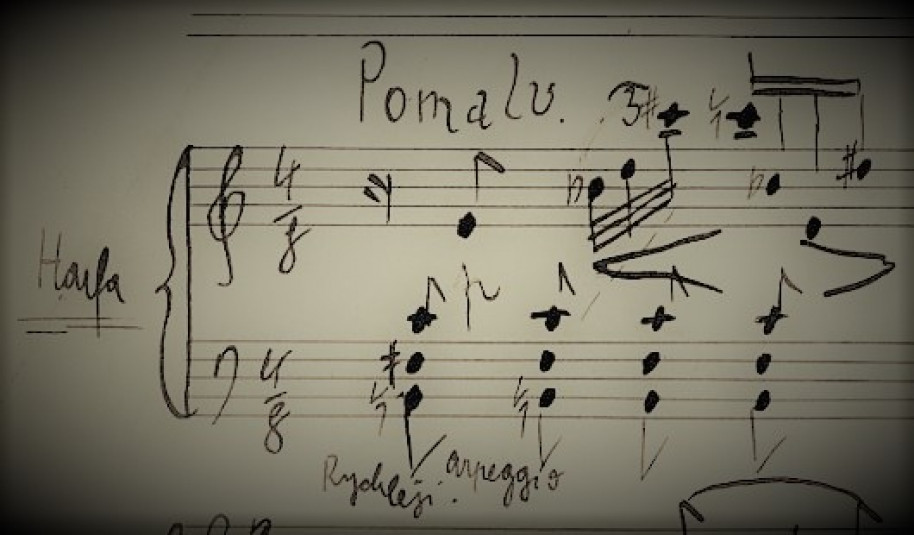 Pomalu.
3
4
8
Harfa
p
4
8
Rychleji. arpeggio